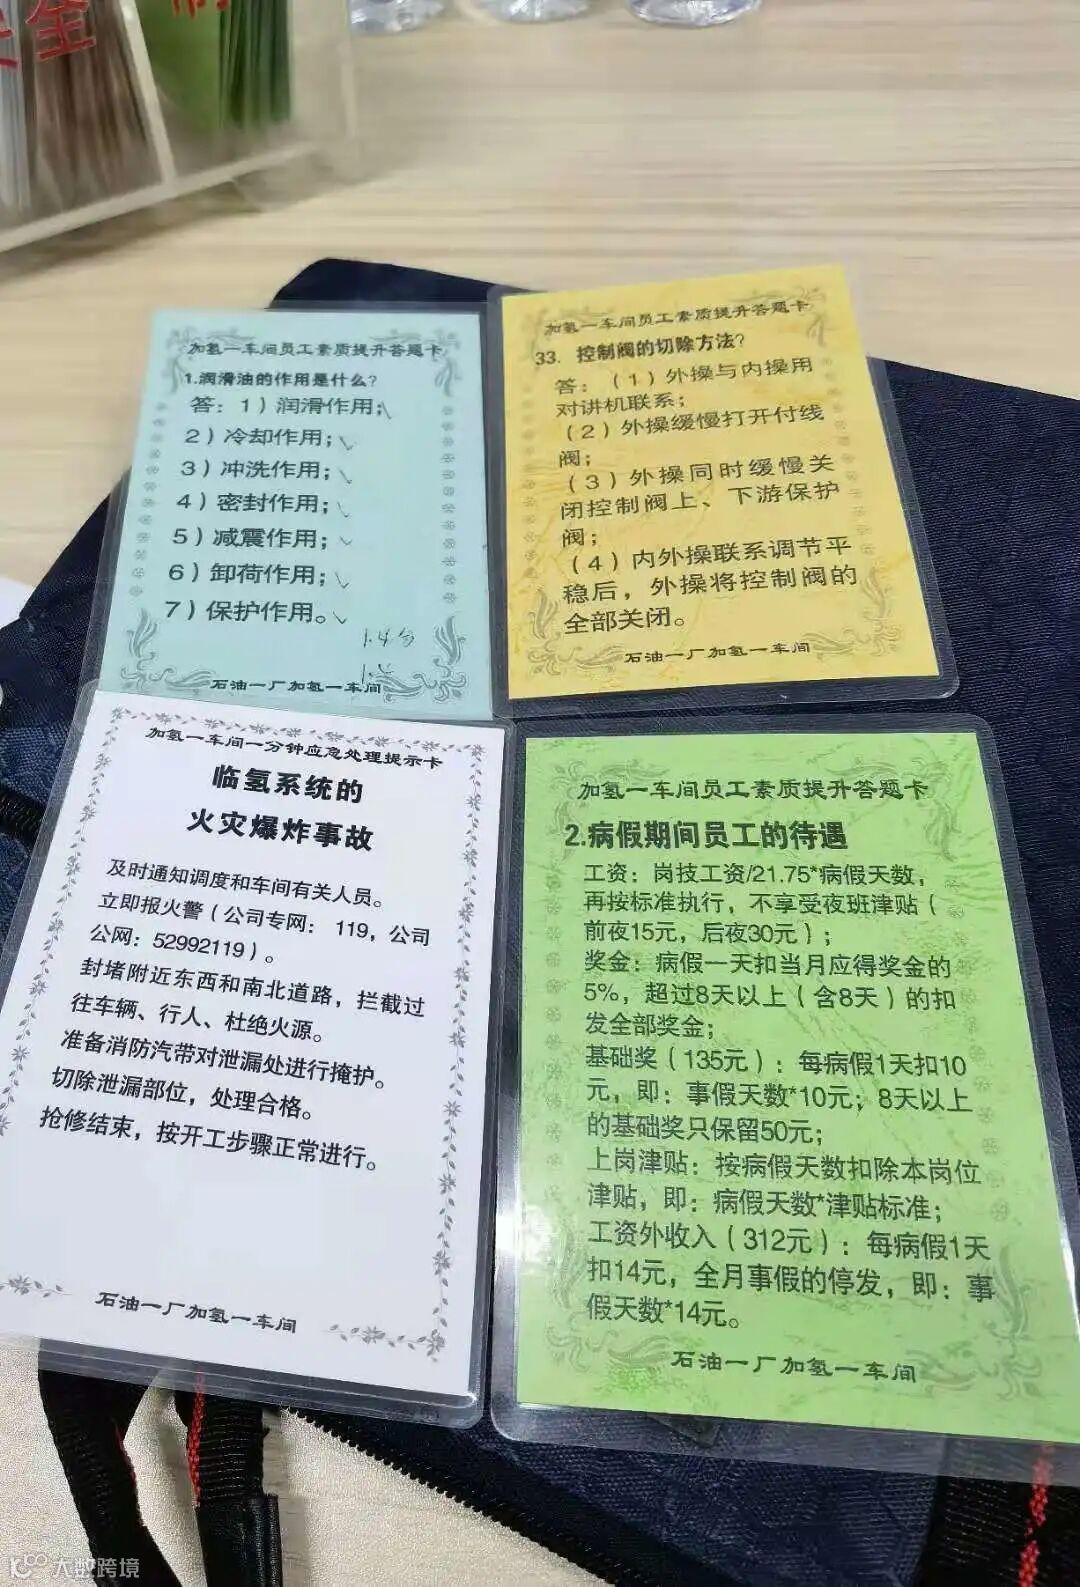 全
加氢一车间员工素质提升答题卡
1.润滑油的作用是什么?
答:1)润滑作用;
2)冷却作用;
3)冲洗作用;
4)密封作用;
5)减震作用;
6)卸荷作用;
7)保护作用。
1.4分
石油一厂加氢一车间
加氢一车间员工素质提升答题卡
33. 控制阀的切除方法?
答:(1)外操与内操用
对讲机联系;
(2)外操缓慢打开付线
阀;
(3)外操同时缓慢关
闭控制阀上、下游保护
阀;
(4)内外操联系调节平
稳后,外操将控制阀的
全部关闭。
石油一厂加氢一车间
加氢一车间一分钟应急处理提示卡
临氢系统的
火灾爆炸事故
及时通知调度和车间有关人员。
立即报火警(公司专网: 119,公司
公网:52992119)。
封堵附近东西和南北道路,拦截过
往车辆、行人、杜绝火源。
准备消防汽带对泄漏处进行掩护。
切除泄漏部位,处理合格。
抢修结束,按开工步骤正常进行。
石油一厂加氢一车间
加氢一车间员工素质提升答题卡
2.病假期间员工的待遇
工资:岗技工资/21.75*病假天数,
再按标准执行,不享受夜班津贴(
前夜15元,后夜30元);
奖金:病假一天扣当月应得奖金的
5%,超过8天以上(含8天)的扣
发全部奖金;
基础奖(135元):每病假1天扣10
元,即:事假天数*10元;8天以上
的基础奖只保留50元;
上岗津贴:按病假天数扣除本岗位
津贴,即:病假天数*津贴标准;
工资外收入(312元):每病假1天
扣14元,全月事假的停发,即:事
假天数*14元。
石油一厂加氢一车间
大数跨境